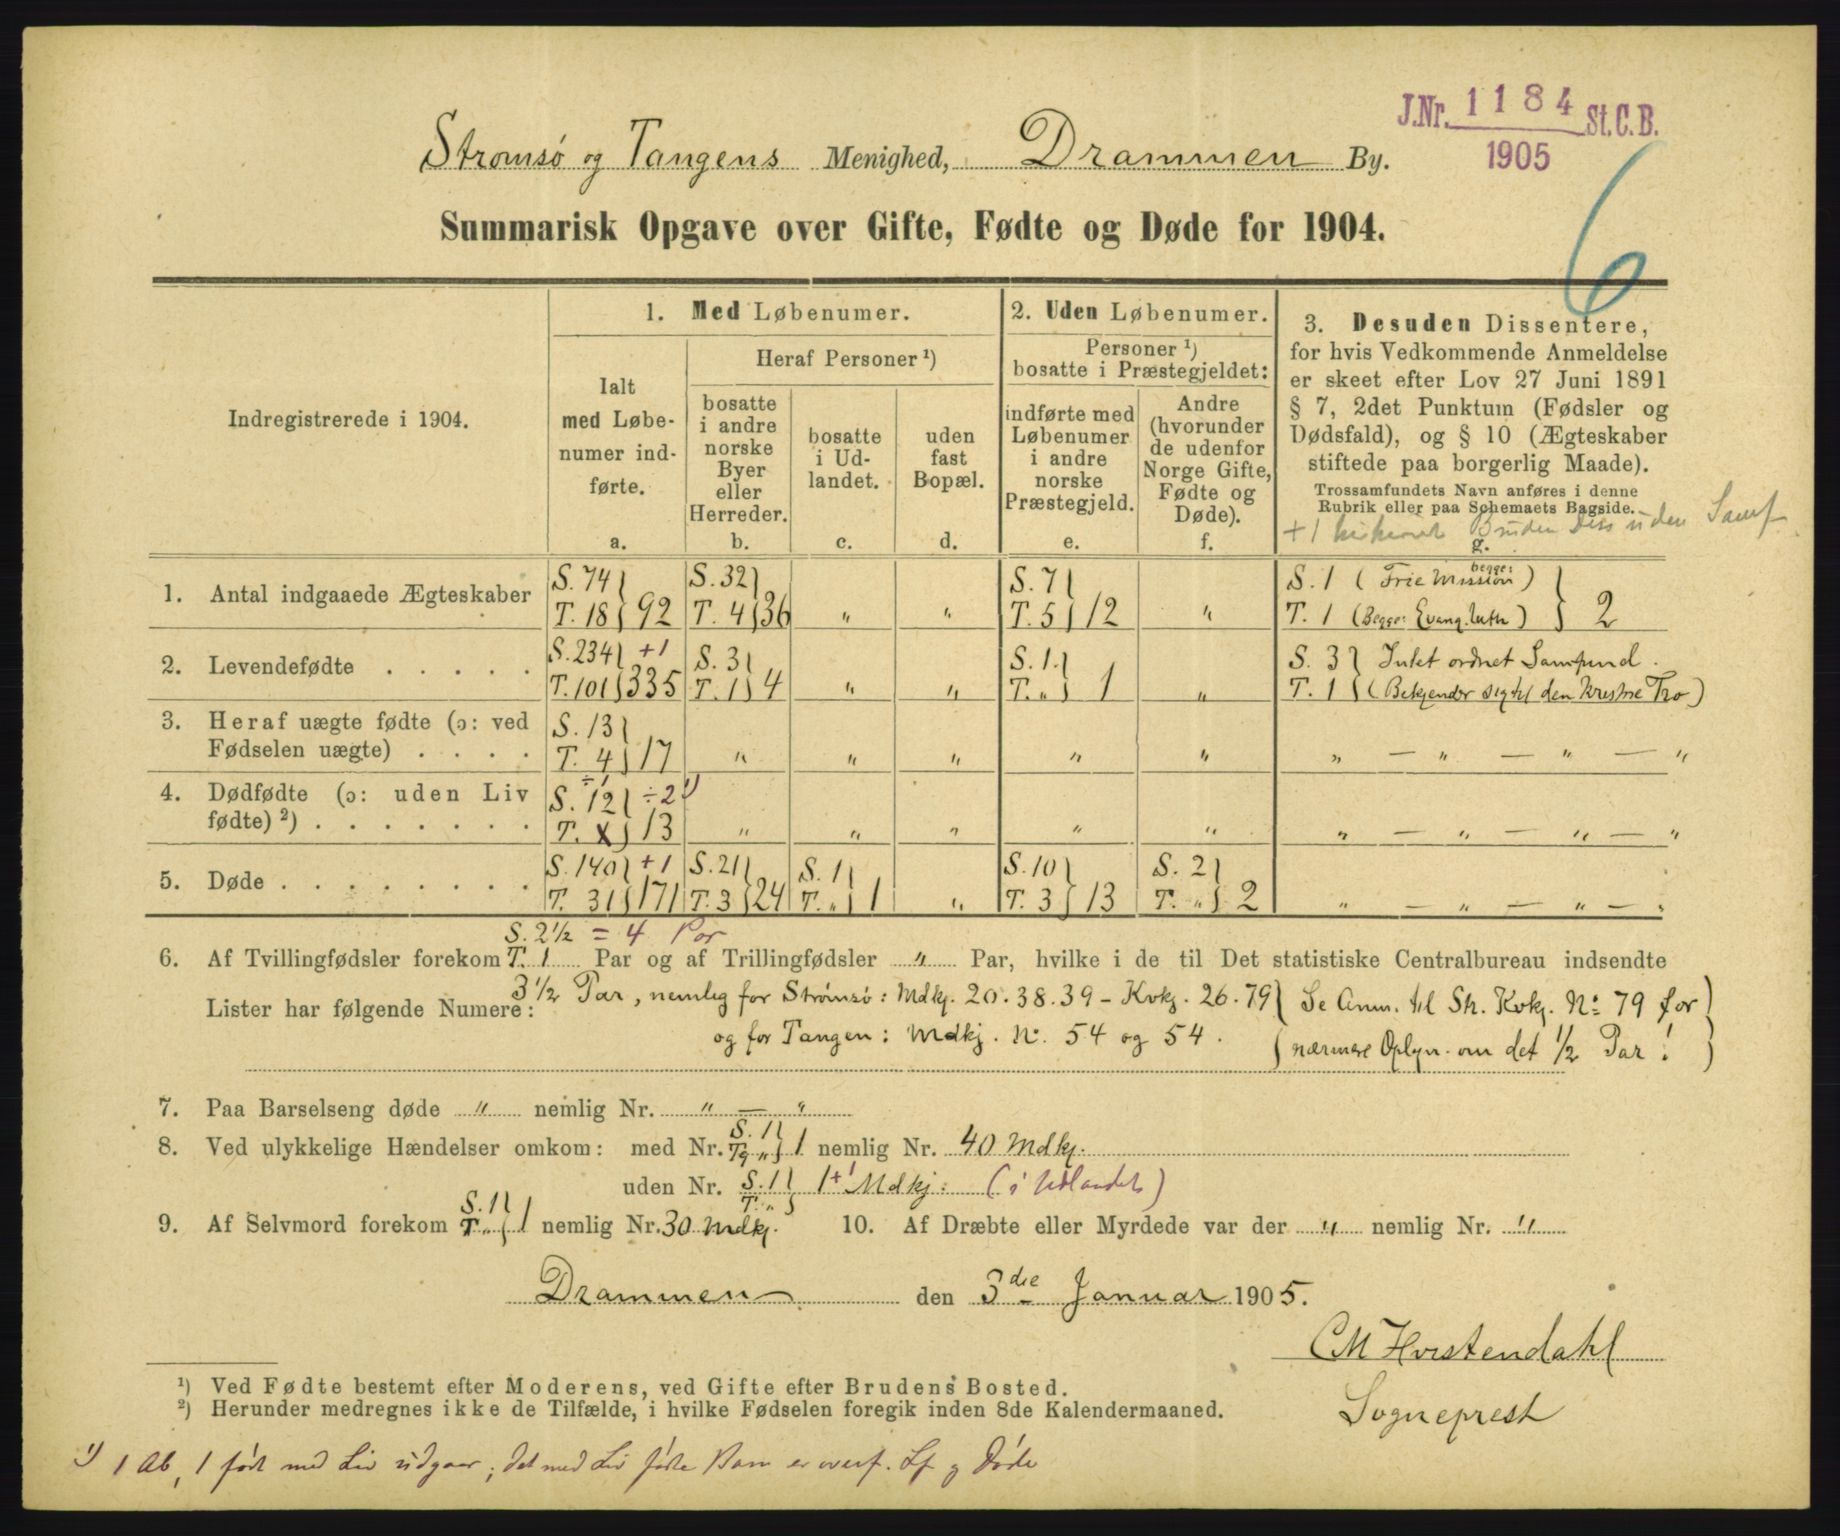 J.Nr. 1184 St.C.B.
1905
6
Strømsø og Tangens Menighed, Drammen By.
Summarisk Opgave over Gifte, Fødte og Døde for 1904.
Indregistrerede i 1904.
1. Med Løbenumer.
Ialt med Løbe-numer ind-førte.
a.
Heraf Personer ¹)
bosatte i andre norske Byer eller Herreder.
b.
bosatte i Ud-landet.
c.
uden fast Bopæl.
d.
2. Uden Løbenumer.
Personer ¹)
bosatte i Præstegjeldet:
indførte med Løbenumer i andre norske Præstegjeld.
e.
Andre (hvorunder de udenfor Norge Gifte, Fødte og Døde).
f.
3. Desuden Dissentere,
for hvis Vedkommende Anmeldelse
er skeet efter Lov 27 Juni 1891
§ 7, 2det Punktum (Fødsler og
Dødsfald), og § 10 (Ægteskaber
stiftede paa borgerlig Maade).
Trossamfundets Navn anføres i denne
Rubrik eller paa Schemaets Bagside.
+ 1 Bruden Diss uden Samf
g.
1. Antal indgaaede Ægteskaber S. 74 T. 18 } 92 S. 32 T. 4 } 36 " " S. 7 T. 5 } 12 " S. 1 (Frie Mission begge) T. 1 (Begge: Evang. luth) } 2
2. Levendefødte . . . . . S. 234 T. 101 } +1 335 S. 3 T. 1 } 4 " " S. 1. T. " } 1 " S. 3 T. 1 } Intet ordnet Samfund. (Bekjender sig til den kristne Tro)
3. Heraf uægte fødte (ɔ: ved
Fødselen uægte) . . . . S. 13 T. 4 } 17 " " " " " " — " — " — "
4. Dødfødte (ɔ: uden Liv
fødte) ²) . . . . . . . ÷1 S. 12 T. X } ÷2 ¹) 13 " " " " " " — " — " — "
5. Døde . . . . . . . . S. 140 T. 31 } +1 171 S. 21 T. 3 } 24 S. 1 T. " } 1 " S. 10 T. 3 } 13 S. 2 T. " } 2 " — " — " — "
S. 2½ = 4 Par
6. Af Tvillingfødsler forekom T. 1 Par og af Trillingfødsler " Par, hvilke i de til Det statistiske Centralbureau indsendte
Lister har følgende Numere: 3½ Par, nemlig for Strømsø: Mdkj. 20. 38. 39 – Kvkj. 26. 79 (Se Anm. til Str. Kvkj. No 79 for
og for Tangen: Mdkj. No. 54 og 54. nærmere Oplysn. om det ½ Par!)
7. Paa Barselseng døde " nemlig Nr. " — "
8. Ved ulykkelige Hændelser omkom: med Nr. S. 1 T. " } 1 nemlig Nr. 40 Mdkj.
uden Nr. S. 1 T. " } 1 +1 Mdkj: (i Udlandet)
9. Af Selvmord forekom S. 1 T. " } 1 nemlig Nr. 30 Mdkj. 10. Af Dræbte eller Myrdede var der " nemlig Nr. "
Drammen den 3die Januar 1905.
CM Horstendahl
Sogneprest
¹) Ved Fødte bestemt efter Moderens, ved Gifte efter Brudens Bosted.
²) Herunder medregnes ikke de Tilfælde, i hvilke Fødselen foregik inden 8de Kalendermaaned.
¹) 1 Ab, 1 født med Liv udgaar; det med Liv fødte Barn er overf. Lf og Døde